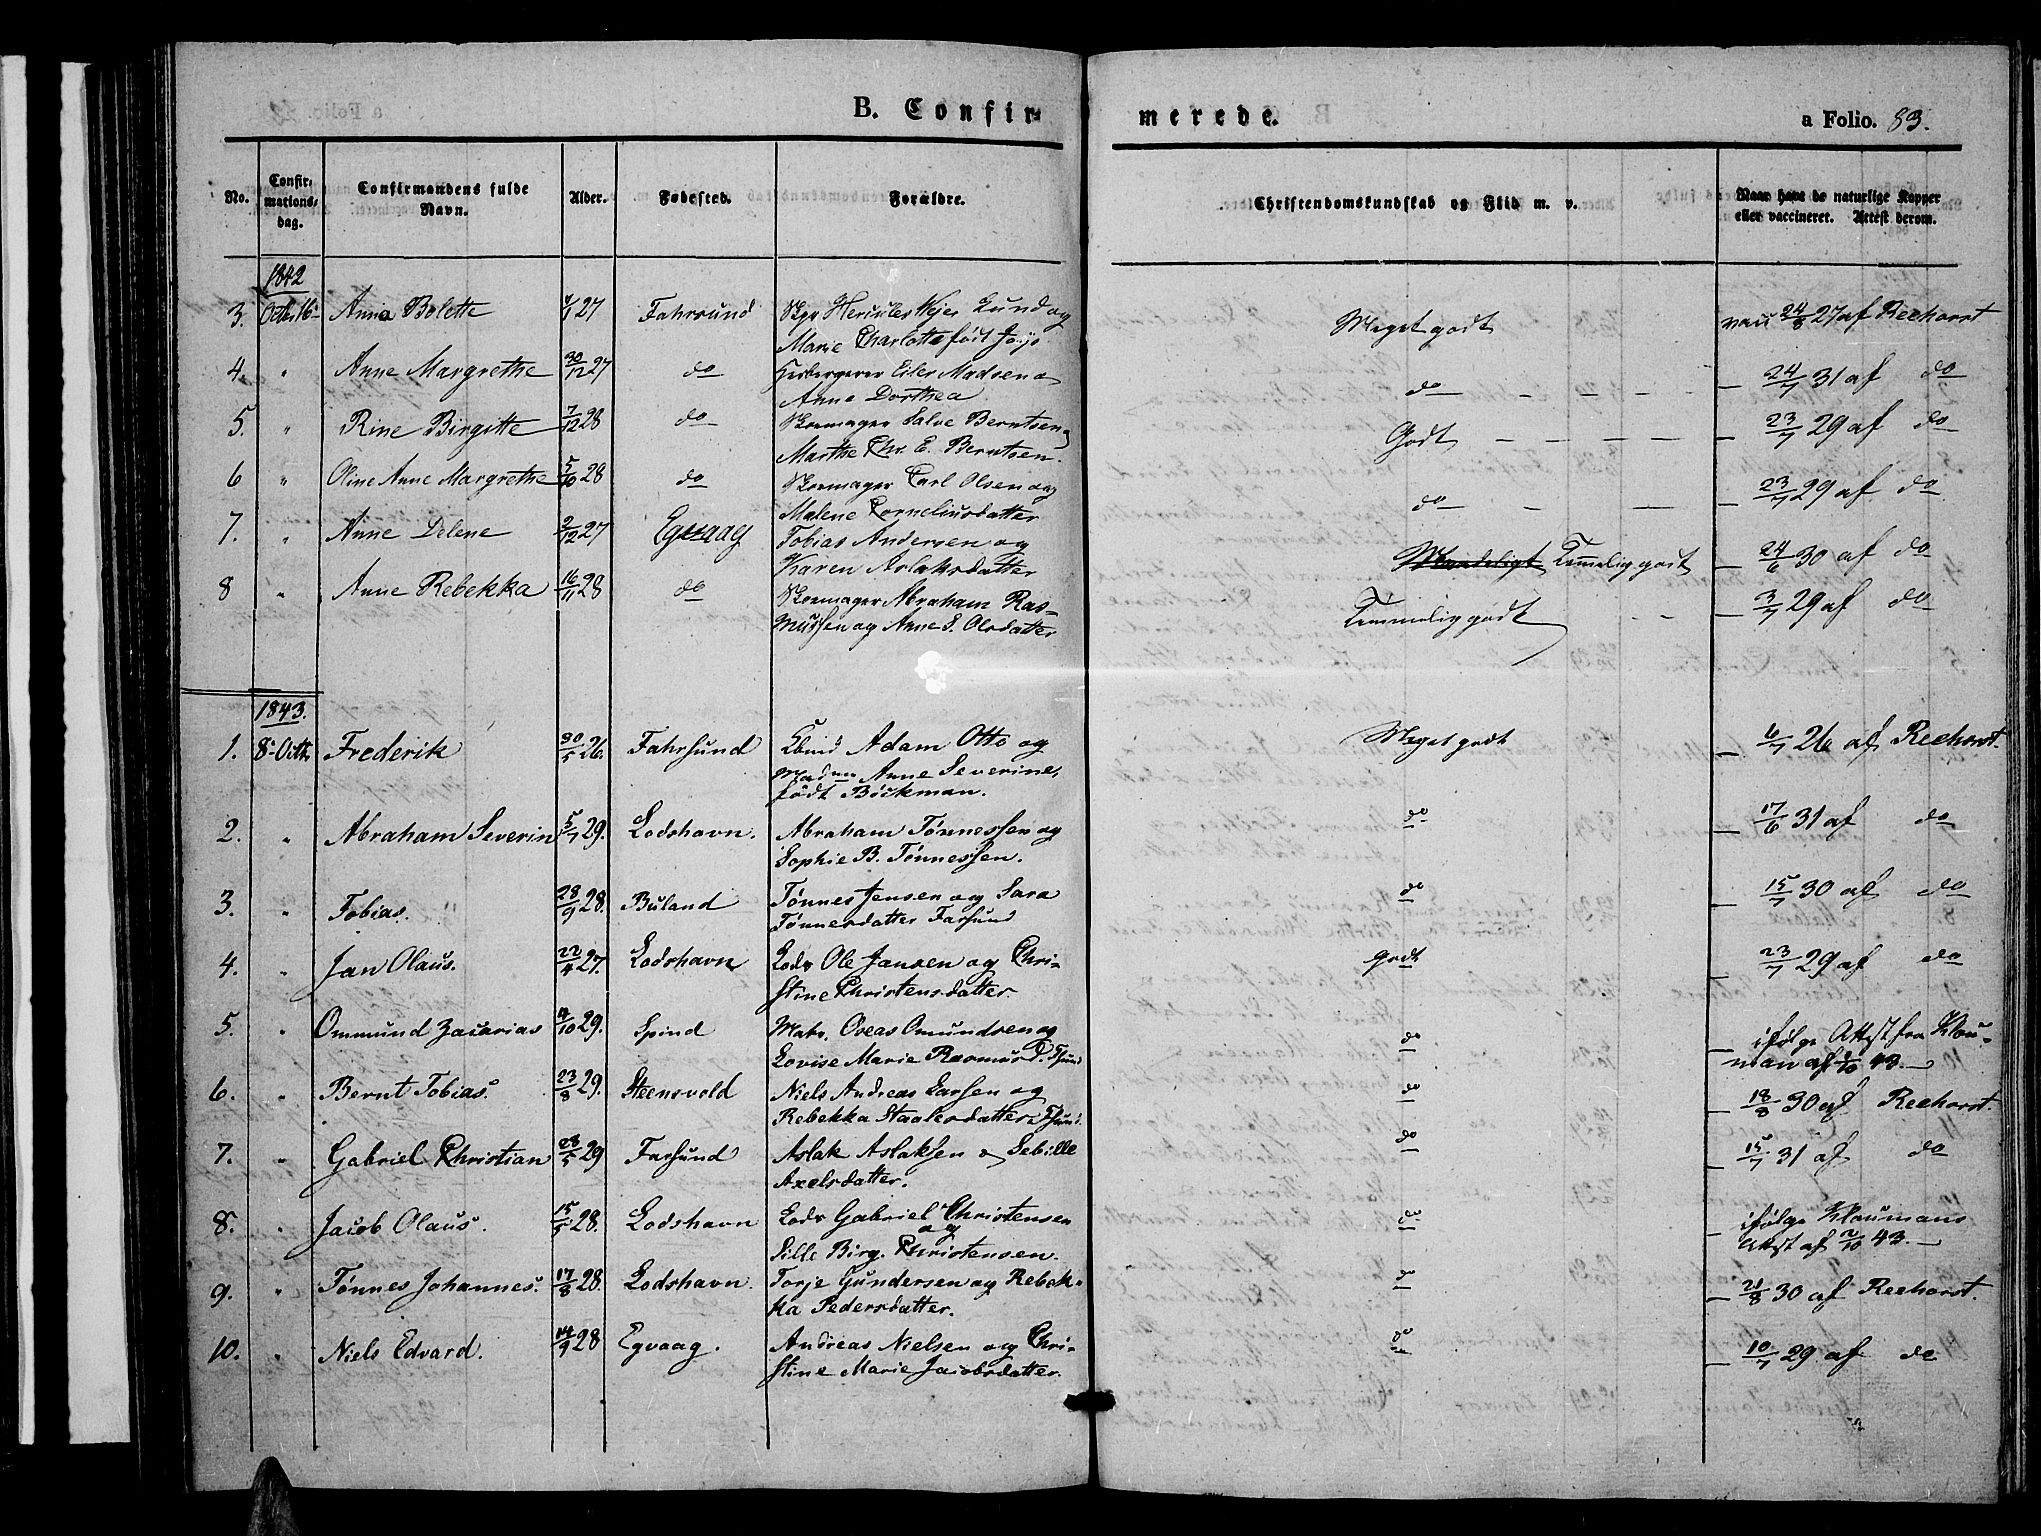 B. Confirmerede.
a Folio. 83.
No. Confirmations-dag. Confirmandens fulde Navn. Alder. Fødested. Forældre. Christendomskundskab og Flid m. v. Naar have de naturlige Kopper eller vaccineret. Attest derom.
1842
3. Octbr 16. Anna Bolette /1 27 Fahrsund Hercules Weyer Lund og Meget godt vac 24/8 27 af Reehorst
Marie Charlotte født
4. " Anne Margrethe 30/12 27 do Eiler Madsen o do – 24/7 31 af do
Anne Dorthea
5. " Rine Birgitte 7/12 28 do Skomager Salve Berntsen og Godt – 23/7 29 af do
Marthe Chr. E. Berntsen.
6 " Oline Anne Margrethe 5/10 28 do Skomager Carl Olsen og do – 23/7 29 af do
Malene Corneliusdatter
7. " Anne Helene 2/12 27 Egvaag Tobias Andersen og Maadeligt Temmelig godt – 24/6 30 af do
Karen Aslaksdatter
8 " Anne Rebekka 16/11 28 do Skomager Abraham Ras- Temmelig godt – 3/7 29 af do
mussen og Anne S. Olsdatter
1843.
1. 8 Octbr Frederik 30/5 26. Fahrsund Adam Otto og Meget godt – 6/7 26 af Reehorst.
Anne Severine,
født Böckman.
2. " Abraham Severin 5/7 29. Lodshavn. Abraham Tønnessen og do – 17/6 31 af do
Sophie B. Tønnessen.
3. " Tobias. 28/9 28. Buland Tønnes Jensen og Sara do – 15/7 30 af do
Tönnesdatter Farsund
4. " Jan Olaus. 22/4 27. Lodshavn Lods Ole Jansen og Chri- godt – 23/7 29 af do
stine Christensdatter.
5. " Ommund Zacarias 4/10 29. Spind Matr. Oveas Omundsen og do – ifölge Attest fra Klau-
Lovise Marie Rasmusd. Fsund man af /10 43. –
6. " Bernt Tobias. 23/8 29. Steensvold Niels Andreas Larsen og do – 18/8 30 af Reehorst.
Rebekka Staalesdatter Fsund.
7. " Gabriel Christian 28/5 29 Farsund Aslak Aslaksen o Sebille do – 15/7 31 af do
Axelsdatter.
8. " Jacob Olaus. 15/5 28. Lodshavn Lods Gabriel Christensen do ifölge Klaumans
og
Sille Birg. Christensen. Attest af 2/10 43. –
9. " Tønnes Johannes. 17/8 28. Lodshavn. Torje Gundersen og Rebek- do – 21/8 30 af Reehorst.
ka Pedersdatter.
10. " Niels Edvard. 14/9 28 Egvaag. Andreas Nielsen og Chri- do – 10/7 29 af do
stine Marie Jacobsdatter.